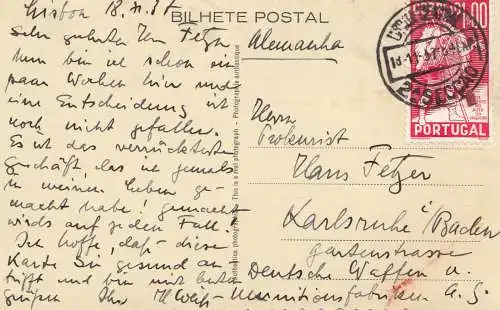 Lissabon 18.11.37
BILHETE POSTAL
Sehr geehrter Herr Fetzer
Nun bin ich schon ein
paar Wochen hier und
eine Entscheidung ist
noch nicht gefallen.
Es ist das verrückteste
Geschäft, das ich jemals
in meinem Leben ge-
macht habe! gemacht
wirds auf jeden Fall!
Ich hoffe, daß diese
Karte Sie gesund an-
trifft und bin mit besten
Grüßen Ihr
Photographie authentique
This is a real photograph
Alemanha
Herrn
Prokurist
Hans Fetzer
Karlsruhe/Baden
Gartenstrasse
Deutsche Waffen u.
Munitionsfabriken A.G.
1,00
PORTUGAL
2ª SECÇÃO